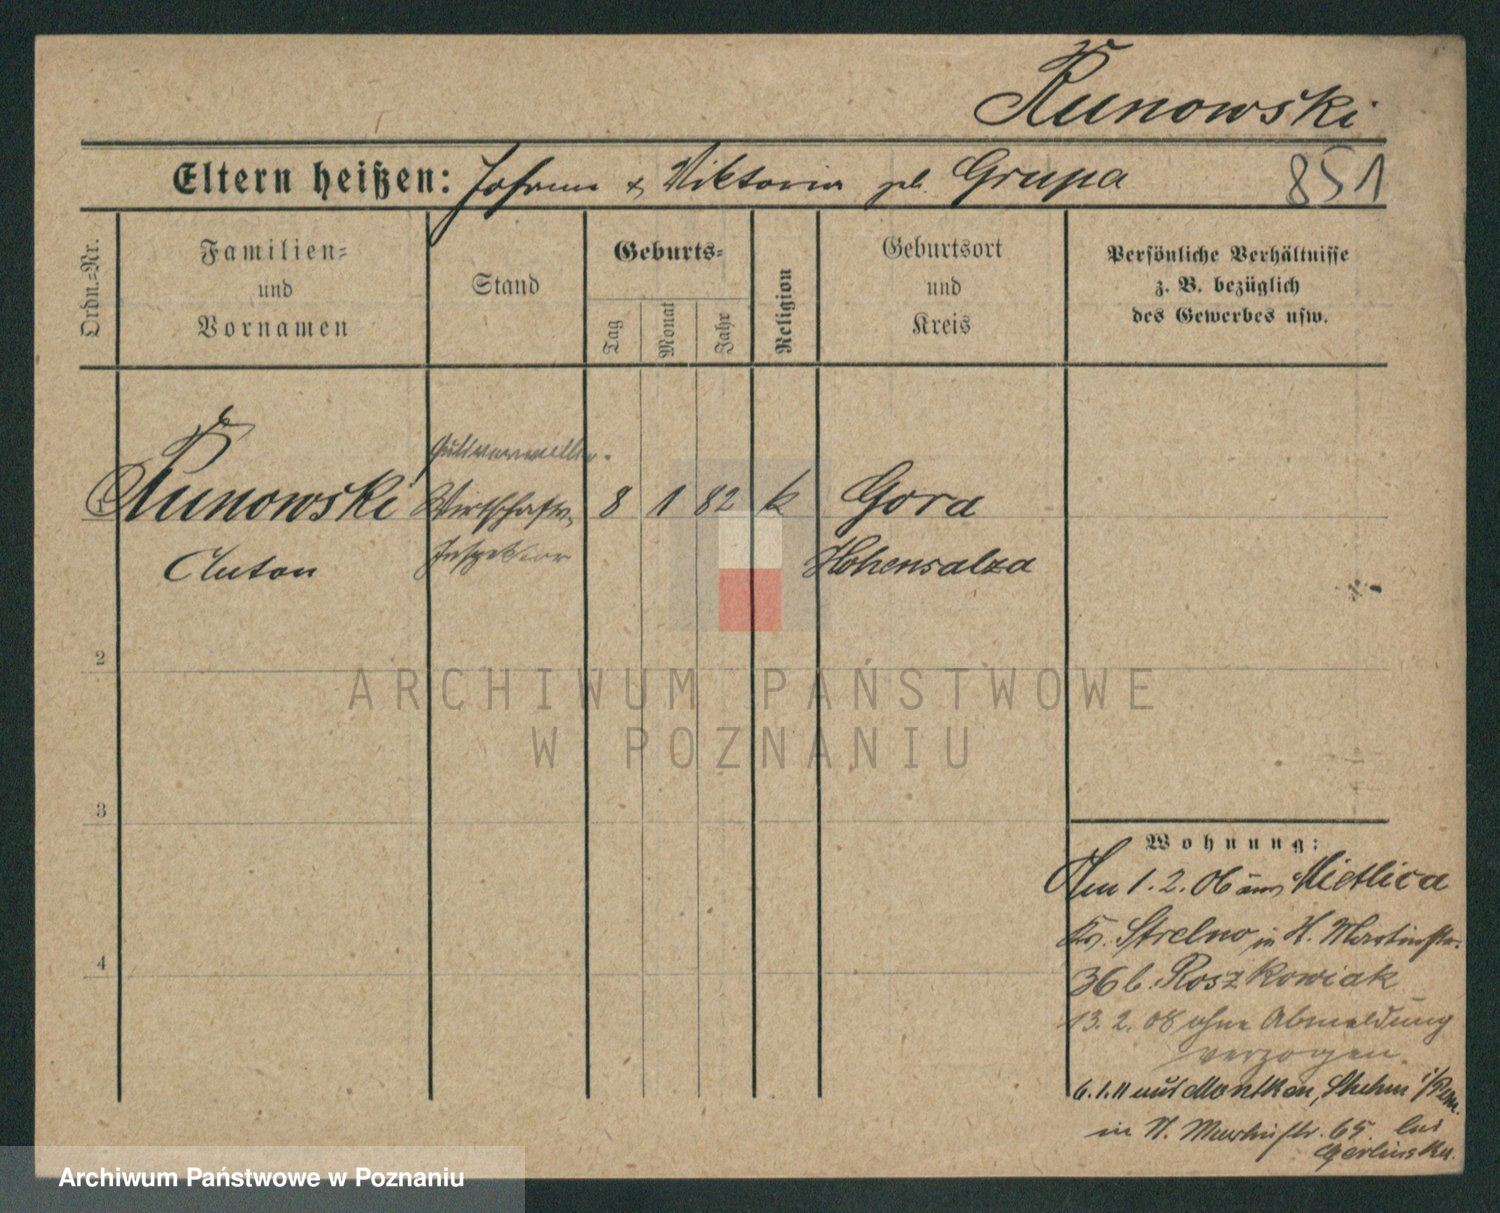 Kunowski
Eltern heißen: Johann & Viktoria geb. Grupa 851
Ordn.-Nr.
Familien-
und
Vornamen
Stand
Geburts-
Tag
Monat
Jahr
Religion
Geburtsort
und
Kreis
Persönliche Verhältnisse
z. B. bezüglich
des Gewerbes usw.
Gutsverwalter.
Kunowski Wirtschafts- 8 1 82 k Gora
Anton Inspektor Hohensalza
2
3
4
ARCHIWUM PAŃSTWOWE
W POZNANIU
Wohnung:
Am 1. 2. 06 aus Mietlica
Kr. Strelno in H. Martinstr.
36 b. Roszkowiak
13. 2. 08 ohne Abmeldung
verzogen.
6.1.11 aus Montken, Stuhm
in H. Martinstr. 65 bei
Gerlinska.
Archiwum Państwowe w Poznaniu